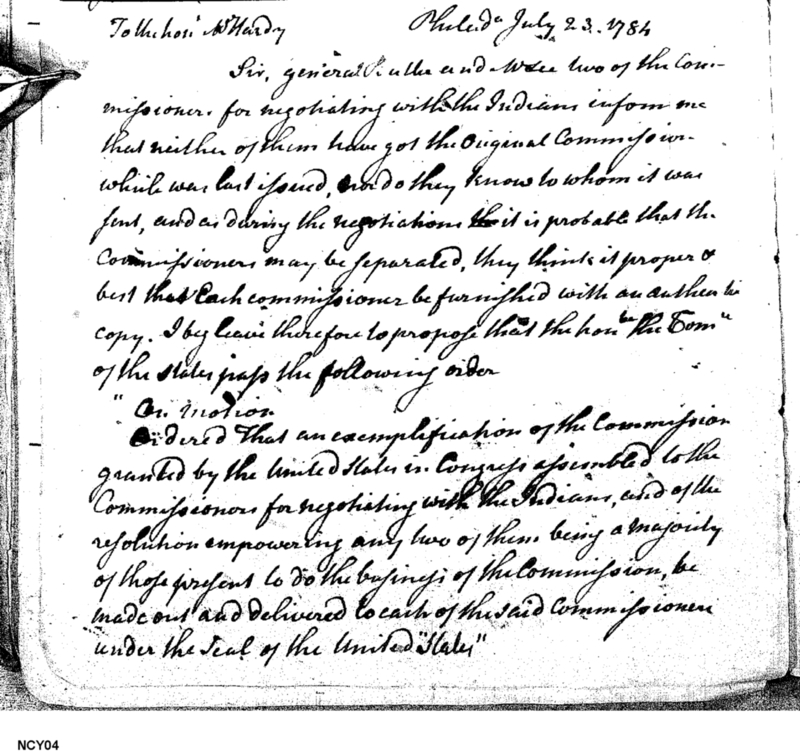 To the hon.l Mr Hardy Philad.a July 23. 1784
Sir, general and two of the Com-
missioners for negotiating with the Indians inform me
that neither of them have got the Original Commission
which was last issued, nor do they know to whom it was
sent, and as during the negotiations it is probable that the
Commissioners may be separated, they think it proper &
best that Each commissioner be furnished with an authentic
copy. I beg leave therefore to propose that the hon.ble the Com.ee
of the states pass the following order
"On motion
Ordered That an exemplification of the Commission
granted by the United States in Congress assembled to the
Commissioners for negotiating with the Indians, and of the
resolution empowering any two of them being a majority
of those present to do the business of the Commission, be
made out and delivered to each of the said Commissioners
under the Seal of the United States"
NCY04